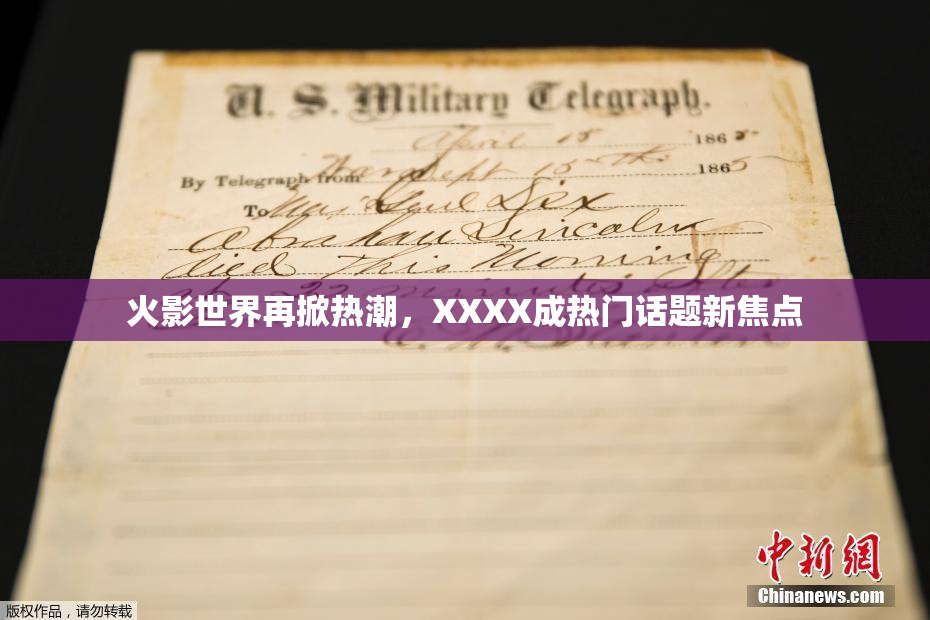 U. S. Military Telegraph.
April 15 1865
By Telegraph from War Dept 15th 1865
To Maj Genl Dix
Abraham Lincoln
died This Morning
at 22 minutes after
火影世界再掀热潮，XXXX成热门话题新焦点
E. M. Stanton
中新网
Chinanews.com
版权作品，请勿转载